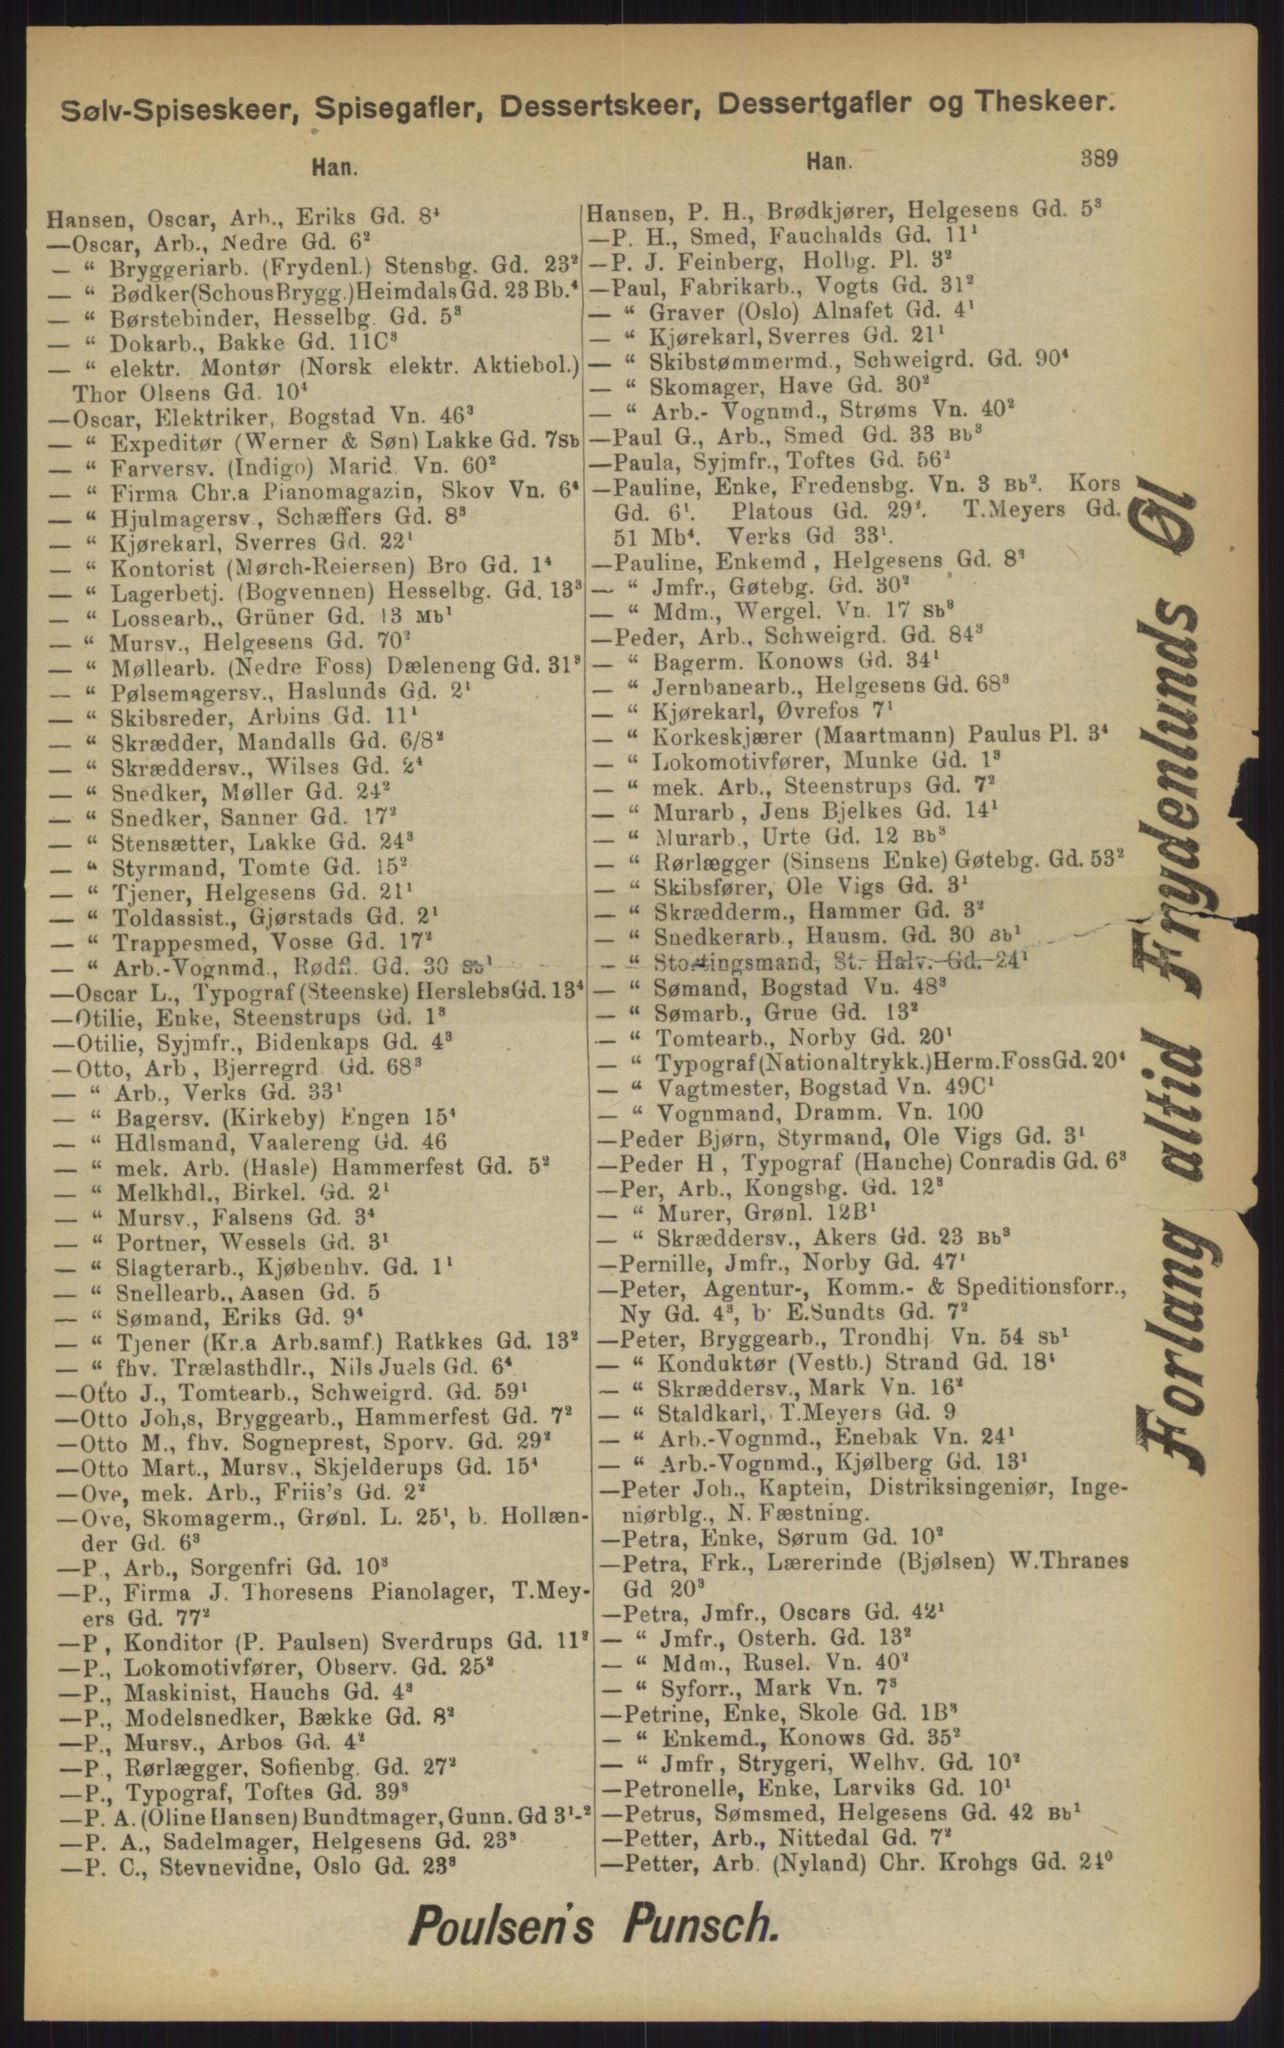 Sølv-Spiseskeer, Spisegafler, Dessertskeer, Dessertgafler og Theskeer.
Han.
Hansen, Oscar, Arb., Eriks Gd. 8⁴
—Oscar, Arb., Nedre Gd. 6²
— “ Bryggeriarb. (Frydenl.) Stensbg. Gd. 23²
— “ Bødker(SchousBrygg.)HeimdalsGd. 23 Bb.⁴
— “ Børstebinder, Hesselbg. Gd. 5³
— “ Dokarb., Bakke Gd. 11C³
— “ elektr. Montør (Norsk elektr. Aktiebol.)
Thor Olsens Gd. 10⁴
—Oscar, Elektriker, Bogstad Vn. 46³
— “ Expeditør (Werner & Søn) Lakke Gd. 7Sb
— “ Farversv. (Indigo) Marid. Vn. 60²
— “ Firma Chr.a Pianomagazin, Skov Vn. 6⁴
— “ Hjulmagersv., Schæffers Gd. 8³
— “ Kjørekarl, Sverres Gd. 22¹
— “ Kontorist (Mørch-Reiersen) Bro Gd. 1⁴
— “ Lagerbetj. (Bogvennen) Hesselbg. Gd. 13³
— “ Lossearb., Grüner Gd. 13 Mb¹
— “ Mursv., Helgesens Gd. 70²
— “ Møllearb. (Nedre Foss) Dæleneng Gd. 31³
— “ Pølsemagersv., Haslunds Gd. 2¹
— “ Skibsreder, Arbins Gd. 11¹
— “ Skrædder, Mandalls Gd. 6/8²
— “ Skræddersv., Wilses Gd. 2⁴
— “ Snedker, Møller Gd. 24²
— “ Snedker, Sanner Gd. 17²
— “ Stensætter, Lakke Gd. 24³
— “ Styrmand, Tomte Gd. 15²
— “ Tjener, Helgesens Gd. 21¹
— “ Toldassist., Gjørstads Gd. 2¹
— “ Trappesmed, Vosse Gd. 17²
— “ Arb.-Vognmd., Rødfl. Gd. 30 Sb¹
—Oscar L., Typograf (Steenske) HerslebsGd. 13⁴
—Otilie, Enke, Steenstrups Gd. 1³
—Otilie, Syjmfr., Bidenkaps Gd. 4³
—Otto, Arb, Bjerregrd Gd. 68³
— “ Arb., Verks Gd. 33¹
— “ Bagersv. (Kirkeby) Engen 15⁴
— “ Hdlsmand, Vaalereng Gd. 46
— “ mek. Arb. (Hasle) Hammerfest Gd. 5²
— “ Melkhdl., Birkel. Gd. 2¹
— “ Mursv., Falsens Gd. 3⁴
— “ Portner, Wessels Gd. 3¹
— “ Slagterarb., Kjøbenhv. Gd. 1¹
— “ Snellearb., Aasen Gd. 5
— “ Sømand, Eriks Gd. 9⁴
— “ Tjener (Kr.a Arb.samf.) Ratkkes Gd. 13²
— “ fhv. Trælasthdlr., Nils Juels Gd. 6⁴
—Otto J., Tomtearb., Schweigrd. Gd. 59¹
—Otto Joh,s, Bryggearb., Hammerfest Gd. 7²
—Otto M., fhv. Sogneprest, Sporv. Gd. 29²
—Otto Mart., Mursv., Skjelderups Gd. 15⁴
—Ove, mek. Arb., Friis's Gd. 2²
—Ove, Skomagerm., Grønl. L. 25¹, b. Hollæn-
der Gd. 6³
—P., Arb., Sorgenfri Gd. 10³
—P., Firma J. Thoresens Pianolager, T.Mey-
ers Gd. 77²
—P., Konditor (P. Paulsen) Sverdrups Gd. 11²
—P., Lokomotivfører, Observ. Gd. 25²
—P., Maskinist, Hauchs Gd. 4³
—P., Modelsnedker, Bække Gd. 8²
—P., Mursv., Arbos Gd. 4²
—P., Rørlægger, Sofienbg. Gd. 27²
—P., Typograf, Toftes Gd. 39³
—P. A. (Oline Hansen) Bundtmager, Gunn. Gd 3¹-²
—P. A., Sadelmager, Helgesens Gd. 23³
—P. C., Stevnevidne, Oslo Gd. 23³
Han. 389
Hansen, P. H., Brødkjører, Helgesens Gd. 5³
—P. H., Smed, Fauchalds Gd. 11¹
—P. J. Feinberg, Holbg. Pl. 3²
—Paul, Fabrikarb., Vogts Gd. 31²
— “ Graver (Oslo) Alnafet Gd. 4¹
— “ Kjørekarl, Sverres Gd. 21¹
— “ Skibstømmermd., Schweigrd. Gd. 90⁴
— “ Skomager, Have Gd. 30²
— “ Arb.- Vognmd., Strøms Vn. 40²
—Paul G., Arb., Smed Gd. 33 Bb³
—Paula, Syjmfr., Toftes Gd. 56²
—Pauline, Enke, Fredensbg. Vn. 3 Bb². Kors
Gd. 6¹. Platous Gd. 29⁴. T.Meyers Gd.
51 Mb⁴. Verks Gd 33¹.
—Pauline, Enkemd, Helgesens Gd. 8³
— “ Jmfr., Gøtebg. Gd. 30²
— “ Mdm., Wergel. Vn. 17 Sb³
—Peder, Arb., Schweigrd. Gd. 84³
— “ Bagerm. Konows Gd. 34¹
— “ Jernbanearb., Helgesens Gd. 68³
— “ Kjørekarl, Øvrefos 7¹
— “ Korkeskjærer (Maartmann) Paulus Pl. 3⁴
— “ Lokomotivfører, Munke Gd. 1³
— “ mek. Arb., Steenstrups Gd. 7²
— “ Murarb, Jens Bjelkes Gd. 14¹
— “ Murarb., Urte Gd. 12 Bb³
— “ Rørlægger (Sinsens Enke) Gøtebg. Gd. 53²
— “ Skibsfører, Ole Vigs Gd. 3¹
— “ Skrædderm., Hammer Gd. 3²
— “ Snedkerarb., Hausm. Gd. 30 Bb¹
— “ Stortingsmand, St. Halv. Gd. 24¹
— “ Sømand, Bogstad Vn. 48³
— “ Sømarb., Grue Gd. 13²
— “ Tomtearb., Norby Gd. 20¹
— “ Typograf (Nationaltrykk.) Herm.FossGd. 20⁴
— “ Vagtmester, Bogstad Vn. 49C¹
— “ Vognmand, Dramm. Vn. 100
—Peder Bjørn, Styrmand, Ole Vigs Gd. 3¹
—Peder H, Typograf (Hanche) Conradis Gd. 6³
—Per, Arb., Kongsbg. Gd. 12³
— “ Murer, Grønl. 12B¹
— “ Skræddersv., Akers Gd. 23 Bb³
—Pernille, Jmfr., Norby Gd. 47¹
—Peter, Agentur-, Komm.- & Speditionsforr.,
Ny Gd. 4³, b. E.Sundts Gd. 7²
—Peter, Bryggearb., Trondhj. Vn. 54 Sb¹
— “ Konduktør (Vestb.) Strand Gd. 18⁴
— “ Skræddersv., Mark Vn. 16²
— “ Staldkarl, T.Meyers Gd. 9
— “ Arb.-Vognmd., Enebak Vn. 24¹
— “ Arb.-Vognmd., Kjølberg Gd. 13¹
—Peter Joh., Kaptein, Distriksingeniør, Inge-
niørblg., N. Fæstning.
—Petra, Enke, Sørum Gd. 10²
—Petra, Frk., Lærerinde (Bjølsen) W.Thranes
Gd 20³
—Petra, Jmfr., Oscars Gd. 42¹
— “ Jmfr., Osterh. Gd. 13²
— “ Mdm., Rusel. Vn. 40²
— “ Syforr., Mark Vn. 7³
—Petrine, Enke, Skole Gd. 1B³
— “ Enkemd., Konows Gd. 35²
— “ Jmfr, Strygeri, Welhv. Gd. 10²
—Petronelle, Enke, Larviks Gd. 10¹
—Petrus, Sømsmed, Helgesens Gd. 42 Bb¹
—Petter, Arb., Nittedal Gd. 7²
—Petter, Arb. (Nyland) Chr. Krohgs Gd. 24⁰
Forlang altid Frydenlunds Øl
Poulsen's Punsch.